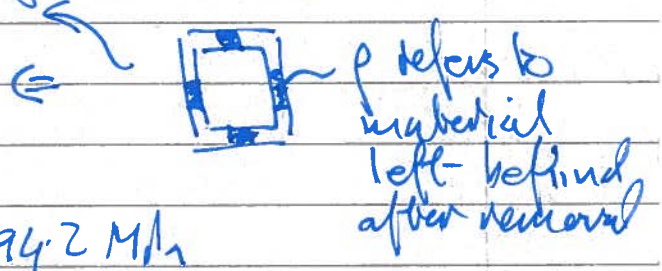 ⇐ ρ refers to
material
left-behind
after removal
94.2 MPa